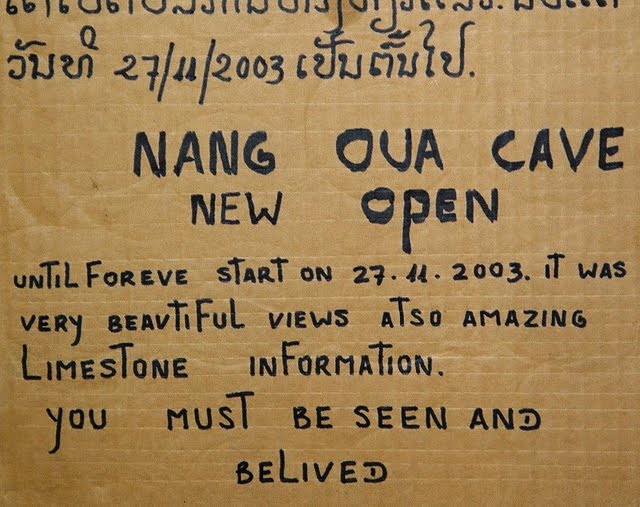 ວັນທີ 27/11/2003 ເປັນຕົ້ນໄປ.
NANG OUA CAVE
NEW OPEN
UNTIL FOREVE START ON 27.11.2003. IT WAS
VERY BEAUTIFUL VIEWS ATSO AMAZING
LIMESTONE INFORMATION.
YOU MUST BE SEEN AND
BELIVED